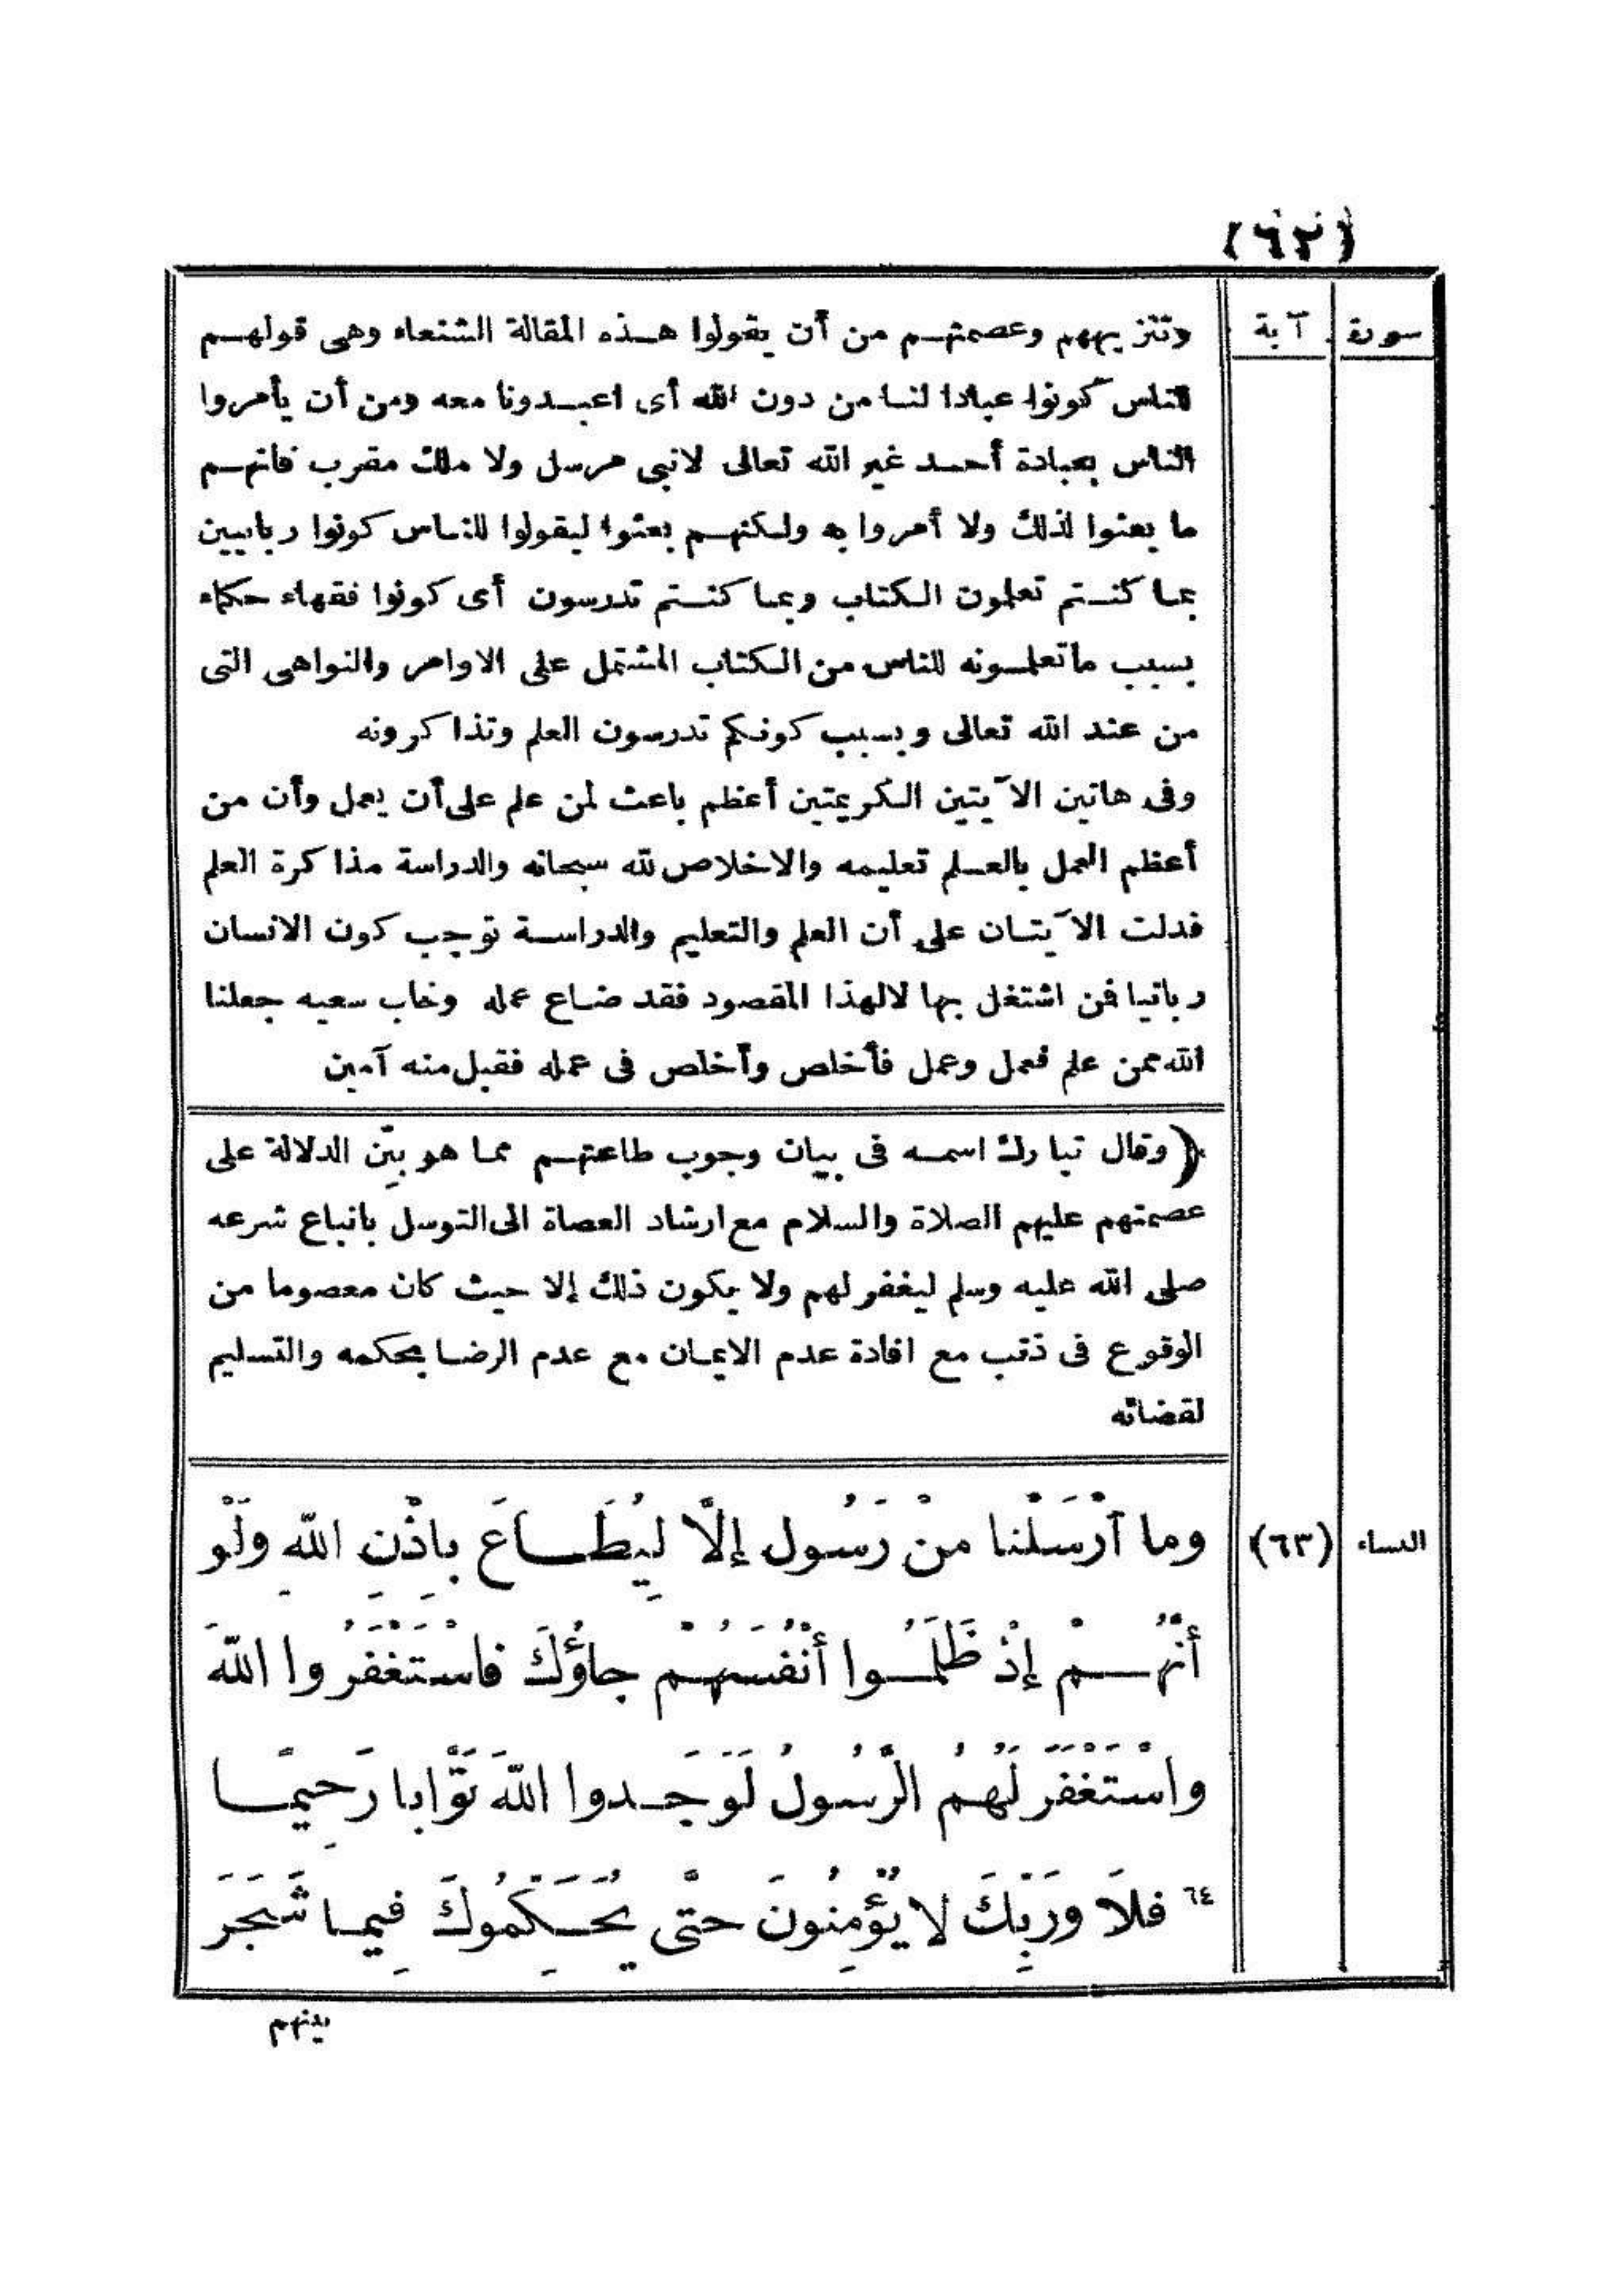 (٦٢)
سورة آية
وتنزيههم وعصمتهم من أن يقولوا هذه المقالة الشنعاء وهى قولهم
للناس كونوا عبادا لنا من دون الله أى اعبدونا معه ومن أن يأمروا
الناس بعبادة أحد غير الله تعالى لانبى مرسل ولا ملك مقرب فانهم
ما بعثوا لذلك ولا أمروا به ولكنهم بعثوا ليقولوا للناس كونوا ربانيين
بما كنتم تعلمون الكتاب وبما كنتم تدرسون أى كونوا فقهاء حكماء
بسبب ما تعلمونه للناس من الكتاب المشتمل على الاوامر والنواهى التى
من عند الله تعالى وبسبب كونكم تدرسون العلم وتذاكرونه
وفى هاتين الآيتين الكريمتين أعظم باعث لمن علم على أن يعمل وأن من
أعظم العمل بالعلم تعليمه والاخلاص لله سبحانه والدراسة مذاكرة العلم
فدلت الآيتان على أن العلم والتعليم والدراسة توجب كون الانسان
ربانيا فمن اشتغل بها لالهذا المقصود فقد ضاع عمله وخاب سعيه جعلنا
الله ممن علم فعمل وعمل فأخلص وأخلص فى عمله فقبل منه آمين
﴿ وقال تبارك اسمه فى بيان وجوب طاعتهم مما هو بيّن الدلالة على
عصمتهم عليهم الصلاة والسلام مع ارشاد العصاة الى التوسل باتباع شرعه
صلى الله عليه وسلم ليغفر لهم ولا يكون ذلك إلا حيث كان معصوما من
الوقوع فى ذنب مع افادة عدم الايمان مع عدم الرضا بحكمه والتسليم
لقضائه
النساء (٦٣) وما أَرْسَلْنا مِنْ رَسُول إلَّا لِيُطَاعَ بِاِذْنِ اللّهِ وَلَوْ
أَنَّهُمْ إذْ ظَلَمُوا أَنْفُسَهُمْ جاؤُكَ فاسْتَغْفَرُوا اللّهَ
واسْتَغْفَرَ لَهُمُ الرَّسُولُ لَوَجَدوا اللّهَ تَوَّابا رَحِيمًا
٦٤ فلَا وَرَبِّكَ لا يُؤْمِنُونَ حتَّى يُحَكِّمُوكَ فِيما شَجَرَ
بينهم